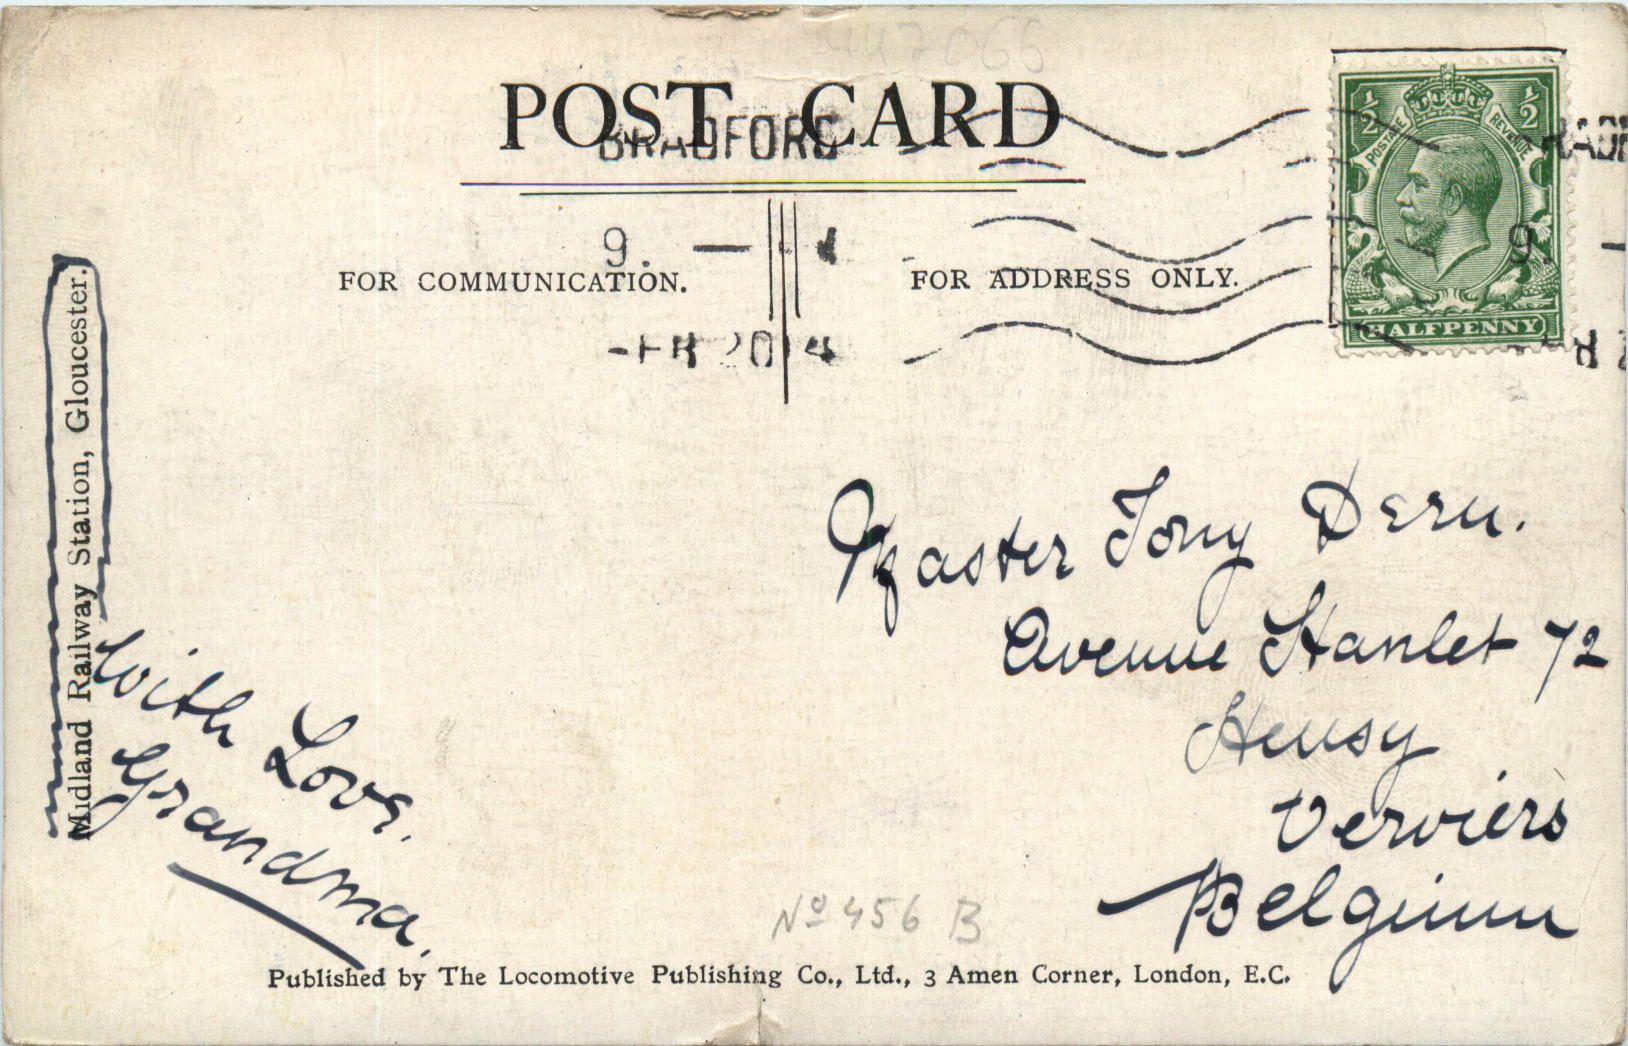 447066
POST CARD
BRADFORD
9.
FOR COMMUNICATION.
FOR ADDRESS ONLY.
½ ½
POSTAGE REVENUE
HALFPENNY
Midland Railway Station, Gloucester.
Master Tony Deru.
Avenue Hanlet 72
Heusy
Verviers
Belgium
With Love.
Grandma.
Nº 456 B
Published by The Locomotive Publishing Co., Ltd., 3 Amen Corner, London, E.C.